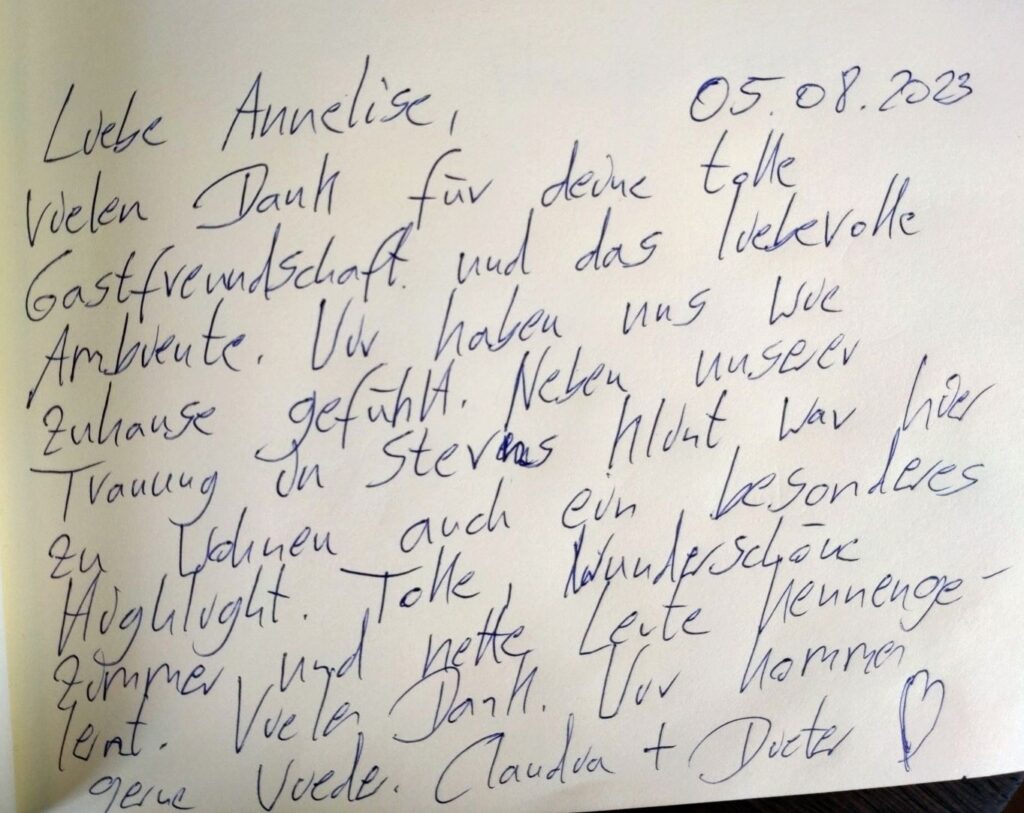 Liebe Annelise, 05.08.2023
vielen Dank für deine tolle
Gastfreundschaft und das liebevolle
Ambiente. Wir haben uns wie
zuhause gefühlt. Neben unserer
Trauung in Stevns Klint war hier
zu wohnen auch ein besonderes
Highlight. Tolle, wunderschöne
Zimmer und nette Leute kennenge-
lernt. Vielen Dank. Wir kommen
gerne wieder. Claudia + Dieter ♡